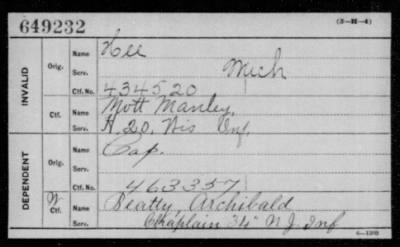 649232 (3-H-4)
INVALID
Orig. Name
Serv. Mich
Ctf. No. 434520
Ctf. Name Mott Manley,
Serv. H. 20, Wis Inf.
DEPENDENT
Orig. Name Cap.
Serv.
Ctf. No. 463357
W Ctf. Name Beatty, Archibald
Serv. Chaplain 34" N J Inf